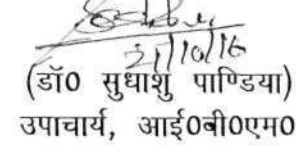 21/10/16
(डॉ0 सुधाशु पाण्डिया)
उपाचार्य, आई0बी0एम0